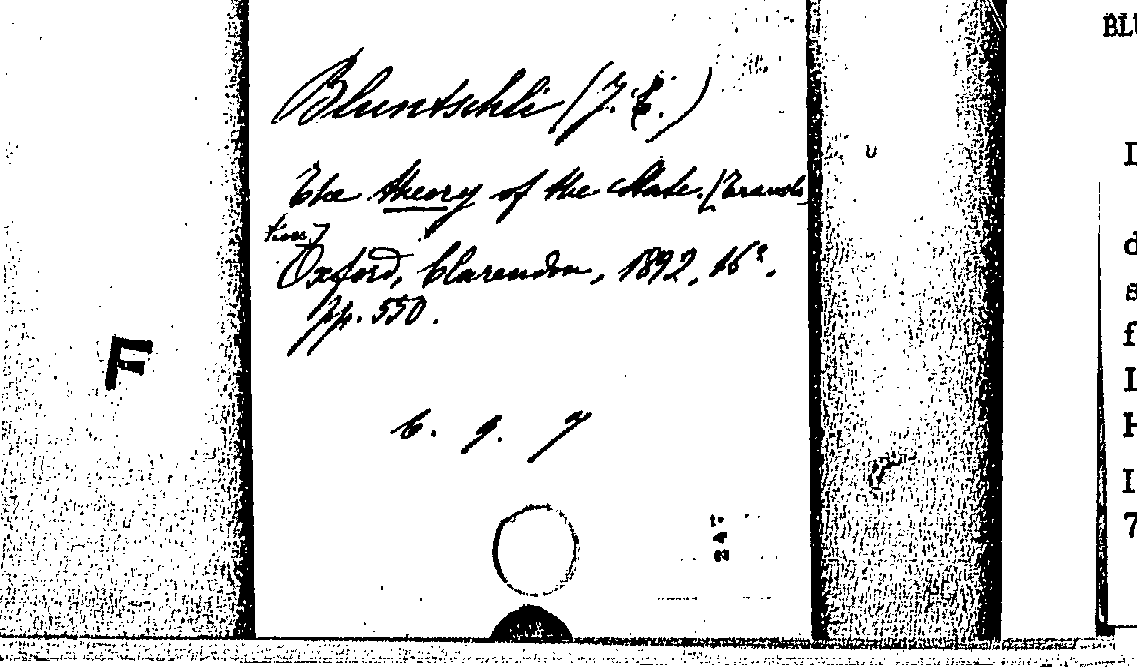 Bluntschli (J. C.)
The theory of the State. [Transla
tion]
Oxford, Clarendon, 1892, 16º.
pp. 550.
C. 9. 7
F
BLU
d
s
f
H
7